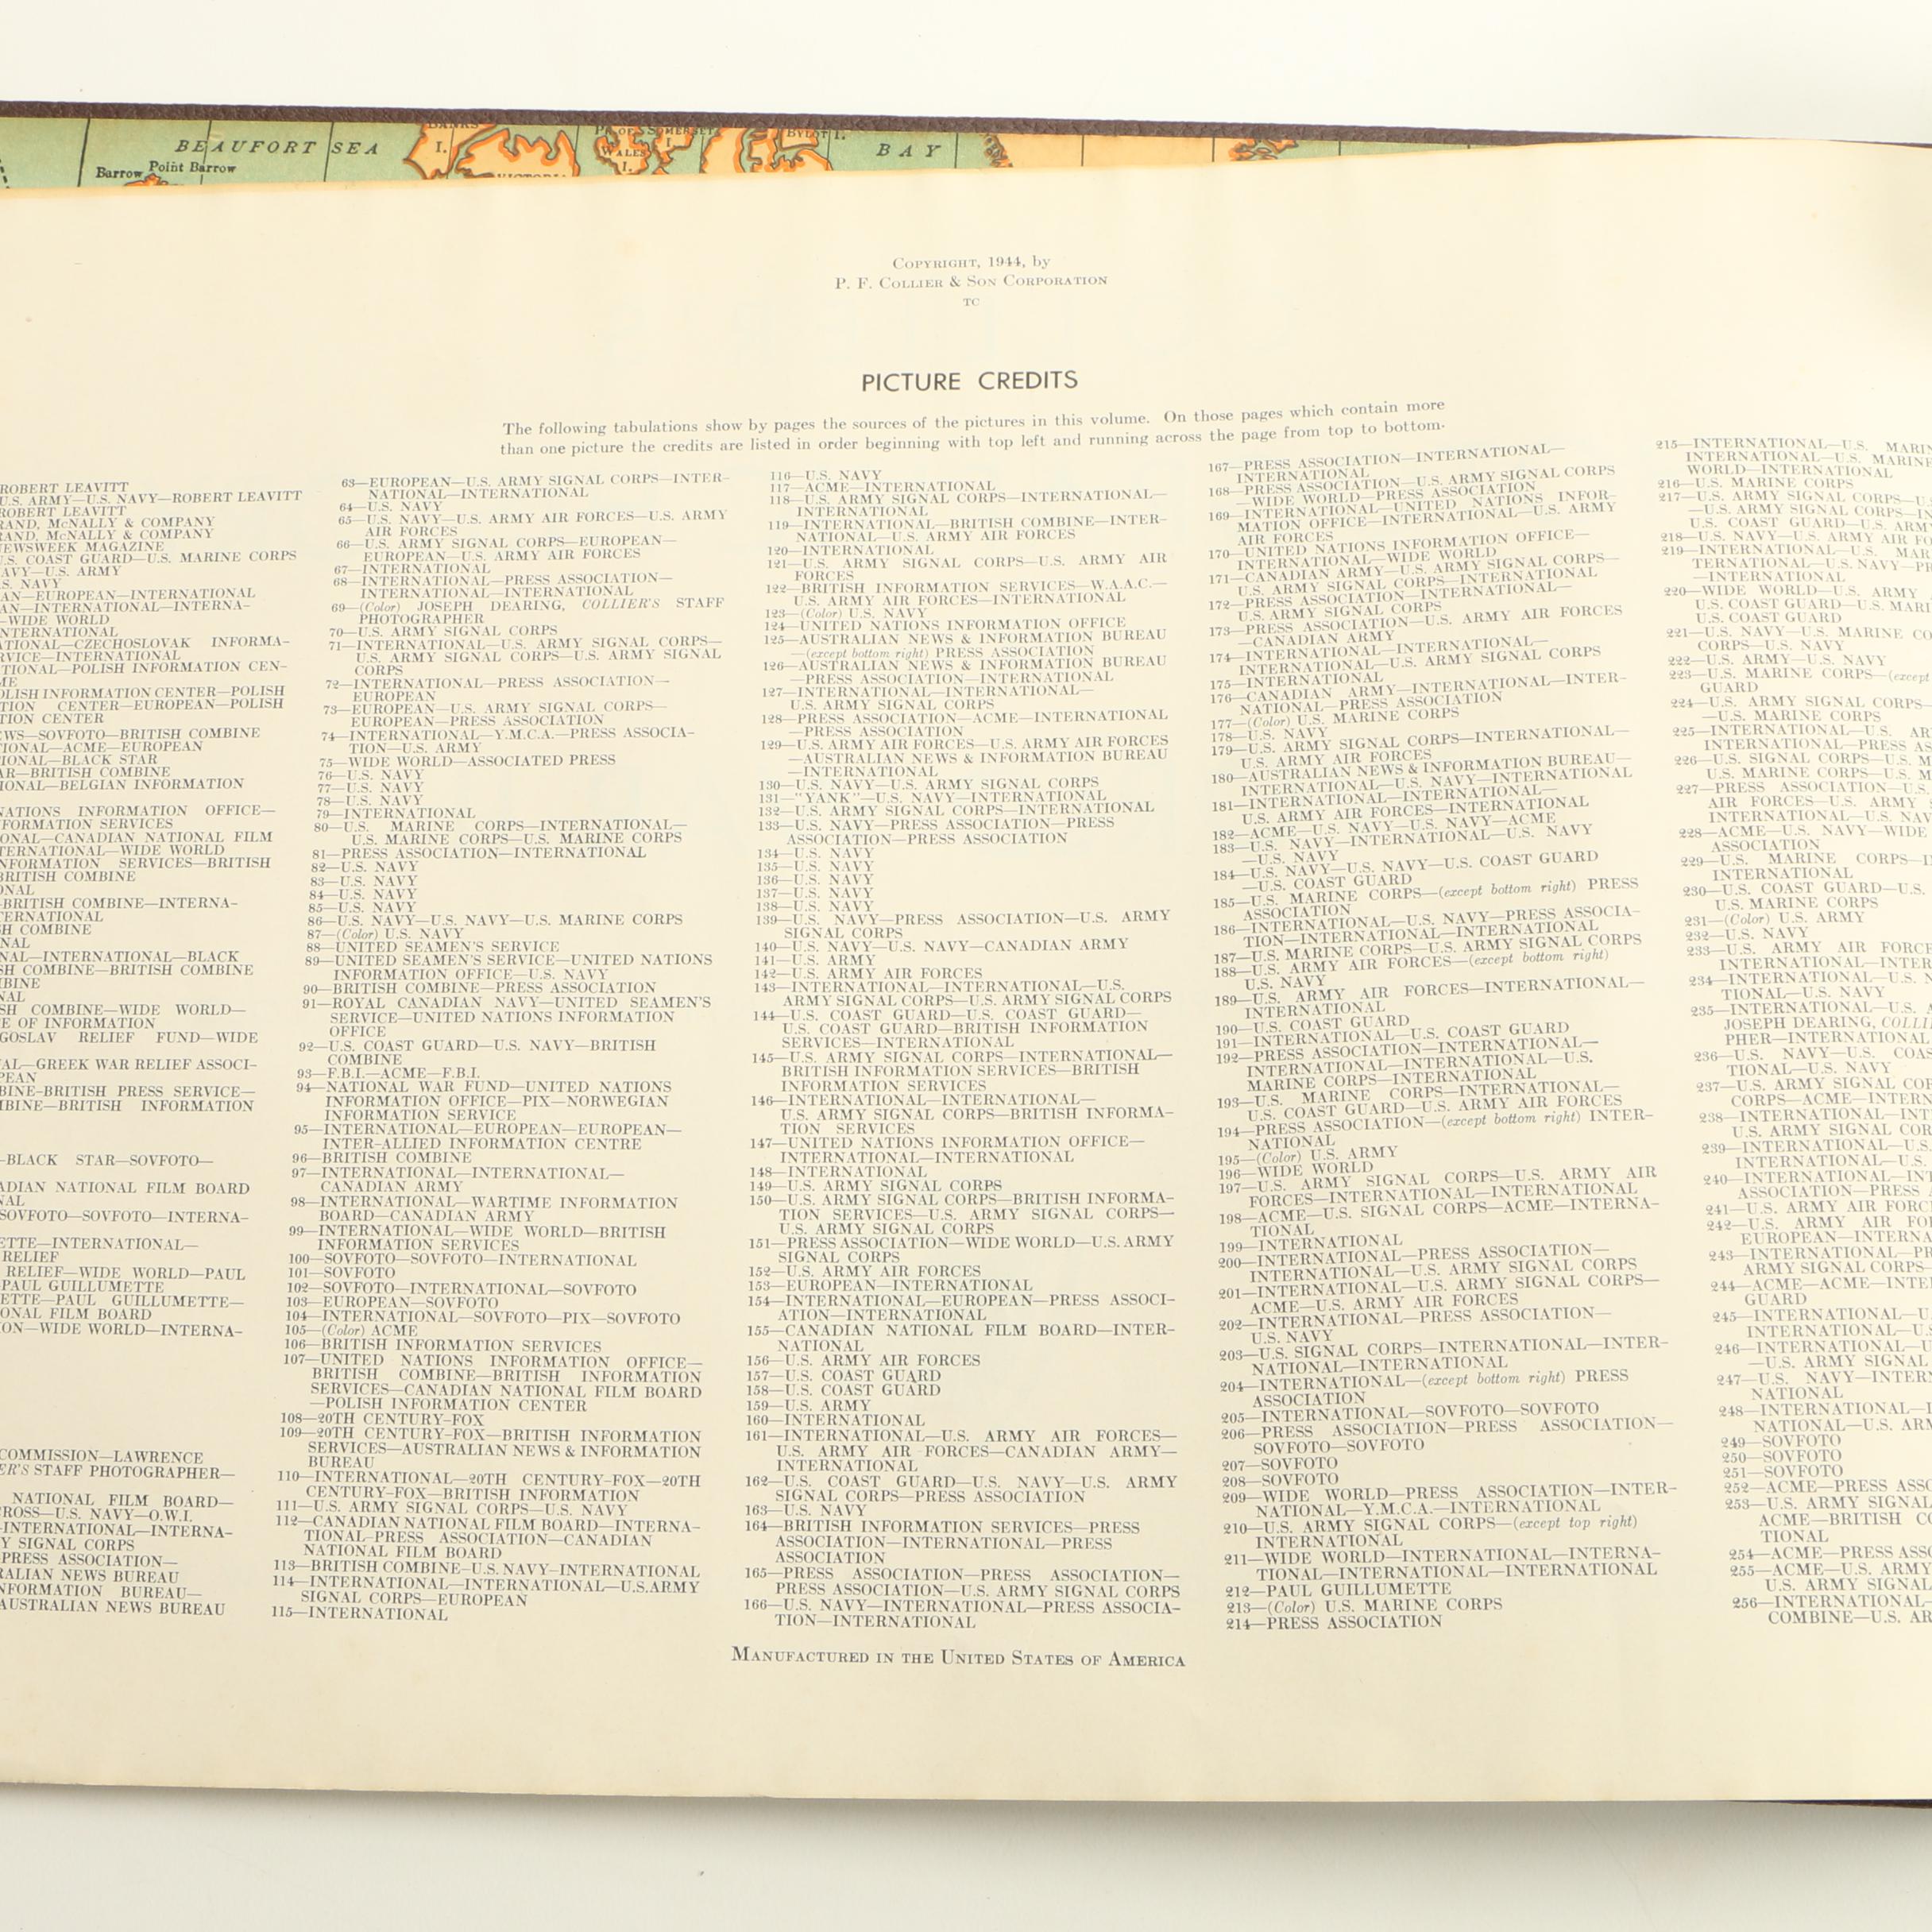 BEAUFORT SEA
Barrow Point Barrow
BANKS
I.
PR. OF
WALES
I.
SOMERSET
I.
BYLOT I.
BAY
COPYRIGHT, 1944, by
P. F. COLLIER & SON CORPORATION
TC
PICTURE CREDITS
The following tabulations show by pages the sources of the pictures in this volume. On those pages which contain more
than one picture the credits are listed in order beginning with top left and running across the page from top to bottom.
ROBERT LEAVITT
U.S. ARMY—U.S. NAVY—ROBERT LEAVITT
ROBERT LEAVITT
RAND, McNALLY & COMPANY
RAND, McNALLY & COMPANY
NEWSWEEK MAGAZINE
U.S. COAST GUARD—U.S. MARINE CORPS
AVY—U.S. ARMY
S. NAVY
AN—EUROPEAN—INTERNATIONAL
AN—INTERNATIONAL—INTERNA-
—WIDE WORLD
NTERNATIONAL
ATIONAL—CZECHOSLOVAK INFORMA-
RVICE—INTERNATIONAL
TIONAL—POLISH INFORMATION CEN-
ME
OLISH INFORMATION CENTER—POLISH
TION CENTER—EUROPEAN—POLISH
TION CENTER
EWS—SOVFOTO—BRITISH COMBINE
IONAL—ACME—EUROPEAN
IONAL—BLACK STAR
AR—BRITISH COMBINE
IONAL—BELGIAN INFORMATION
NATIONS INFORMATION OFFICE—
FORMATION SERVICES
ONAL—CANADIAN NATIONAL FILM
TERNATIONAL—WIDE WORLD
NFORMATION SERVICES—BRITISH
BRITISH COMBINE
ONAL
-BRITISH COMBINE—INTERNA-
TERNATIONAL
SH COMBINE
NAL
NAL—INTERNATIONAL—BLACK
SH COMBINE—BRITISH COMBINE
BINE
NAL
SH COMBINE—WIDE WORLD—
E OF INFORMATION
GOSLAV RELIEF FUND—WIDE
AL—GREEK WAR RELIEF ASSOCI-
PEAN
BINE-BRITISH PRESS SERVICE—
MBINE—BRITISH INFORMATION
-BLACK STAR—SOVFOTO—
ADIAN NATIONAL FILM BOARD
NAL
SOVFOTO—SOVFOTO—INTERNA-
ETTE—INTERNATIONAL—
RELIEF
RELIEF—WIDE WORLD—PAUL
PAUL GUILLUMETTE
ETTE—PAUL GUILLUMETTE—
ONAL FILM BOARD
ON—WIDE WORLD—INTERNA-
COMMISSION—LAWRENCE
ER'S STAFF PHOTOGRAPHER—
NATIONAL FILM BOARD—
ROSS—U.S. NAVY—O.W.I.
-INTERNATIONAL—INTERNA-
Y SIGNAL CORPS
PRESS ASSOCIATION—
RALIAN NEWS BUREAU
NFORMATION BUREAU—
AUSTRALIAN NEWS BUREAU
63—EUROPEAN—U.S. ARMY SIGNAL CORPS—INTER-
NATIONAL—INTERNATIONAL
64—U.S. NAVY
65—U.S. NAVY—U.S. ARMY AIR FORCES—U.S. ARMY
AIR FORCES
66—U.S. ARMY SIGNAL CORPS—EUROPEAN—
EUROPEAN—U.S. ARMY AIR FORCES
67—INTERNATIONAL
68—INTERNATIONAL—PRESS ASSOCIATION—
INTERNATIONAL—INTERNATIONAL
69—(Color) JOSEPH DEARING, COLLIER'S STAFF
PHOTOGRAPHER
70—U.S. ARMY SIGNAL CORPS
71—INTERNATIONAL—U.S. ARMY SIGNAL CORPS—
U.S. ARMY SIGNAL CORPS—U.S. ARMY SIGNAL
CORPS
72—INTERNATIONAL—PRESS ASSOCIATION—
EUROPEAN
73—EUROPEAN—U.S. ARMY SIGNAL CORPS—
EUROPEAN—PRESS ASSOCIATION
74—INTERNATIONAL—Y.M.C.A.—PRESS ASSOCIA-
TION—U.S. ARMY
75—WIDE WORLD—ASSOCIATED PRESS
76—U.S. NAVY
77—U.S. NAVY
78—U.S. NAVY
79—INTERNATIONAL
80—U.S. MARINE CORPS—INTERNATIONAL—
U.S. MARINE CORPS—U.S. MARINE CORPS
81—PRESS ASSOCIATION—INTERNATIONAL
82—U.S. NAVY
83—U.S. NAVY
84—U.S. NAVY
85—U.S. NAVY
86—U.S. NAVY—U.S. NAVY—U.S. MARINE CORPS
87—(Color) U.S. NAVY
88—UNITED SEAMEN'S SERVICE
89—UNITED SEAMEN'S SERVICE—UNITED NATIONS
INFORMATION OFFICE—U.S. NAVY
90—BRITISH COMBINE—PRESS ASSOCIATION
91—ROYAL CANADIAN NAVY—UNITED SEAMEN'S
SERVICE—UNITED NATIONS INFORMATION
OFFICE
92—U.S. COAST GUARD—U.S. NAVY—BRITISH
COMBINE
93—F.B.I.—ACME—F.B.I.
94—NATIONAL WAR FUND—UNITED NATIONS
INFORMATION OFFICE—PIX—NORWEGIAN
INFORMATION SERVICE
95—INTERNATIONAL—EUROPEAN—EUROPEAN—
INTER-ALLIED INFORMATION CENTRE
96—BRITISH COMBINE
97—INTERNATIONAL—INTERNATIONAL—
CANADIAN ARMY
98—INTERNATIONAL—WARTIME INFORMATION
BOARD—CANADIAN ARMY
99—INTERNATIONAL—WIDE WORLD—BRITISH
INFORMATION SERVICES
100—SOVFOTO—SOVFOTO—INTERNATIONAL
101—SOVFOTO
102—SOVFOTO—INTERNATIONAL—SOVFOTO
103—EUROPEAN—SOVFOTO
104—INTERNATIONAL—SOVFOTO—PIX—SOVFOTO
105—(Color) ACME
106—BRITISH INFORMATION SERVICES
107—UNITED NATIONS INFORMATION OFFICE—
BRITISH COMBINE—BRITISH INFORMATION
SERVICES—CANADIAN NATIONAL FILM BOARD
—POLISH INFORMATION CENTER
108—20TH CENTURY-FOX
109—20TH CENTURY-FOX—BRITISH INFORMATION
SERVICES—AUSTRALIAN NEWS & INFORMATION
BUREAU
110—INTERNATIONAL—20TH CENTURY-FOX—20TH
CENTURY-FOX—BRITISH INFORMATION
111—U.S. ARMY SIGNAL CORPS—U.S. NAVY
112—CANADIAN NATIONAL FILM BOARD—INTERNA-
TIONAL-PRESS ASSOCIATION—CANADIAN
NATIONAL FILM BOARD
113—BRITISH COMBINE—U.S. NAVY—INTERNATIONAL
114—INTERNATIONAL—INTERNATIONAL—U.S.ARMY
SIGNAL CORPS—EUROPEAN
115—INTERNATIONAL
116—U.S. NAVY
117—ACME—INTERNATIONAL
118—U.S. ARMY SIGNAL CORPS—INTERNATIONAL—
INTERNATIONAL
119—INTERNATIONAL—BRITISH COMBINE—INTER-
NATIONAL—U.S. ARMY AIR FORCES
120—INTERNATIONAL
121—U.S. ARMY SIGNAL CORPS—U.S. ARMY AIR
FORCES
122—BRITISH INFORMATION SERVICES—W.A.A.C.—
U.S. ARMY AIR FORCES—INTERNATIONAL
123—(Color) U.S. NAVY
124—UNITED NATIONS INFORMATION OFFICE
125—AUSTRALIAN NEWS & INFORMATION BUREAU
—(except bottom right) PRESS ASSOCIATION
126—AUSTRALIAN NEWS & INFORMATION BUREAU
—PRESS ASSOCIATION—INTERNATIONAL
127—INTERNATIONAL—INTERNATIONAL—
U.S. ARMY SIGNAL CORPS
128—PRESS ASSOCIATION—ACME—INTERNATIONAL
—PRESS ASSOCIATION
129—U.S. ARMY AIR FORCES—U.S. ARMY AIR FORCES
—AUSTRALIAN NEWS & INFORMATION BUREAU
—INTERNATIONAL
130—U.S. NAVY—U.S. ARMY SIGNAL CORPS
131—"YANK"—U.S. NAVY—INTERNATIONAL
132—U.S. ARMY SIGNAL CORPS—INTERNATIONAL
133—U.S. NAVY—PRESS ASSOCIATION—PRESS
ASSOCIATION—PRESS ASSOCIATION
134—U.S. NAVY
135—U.S. NAVY
136—U.S. NAVY
137—U.S. NAVY
138—U.S. NAVY
139—U.S. NAVY—PRESS ASSOCIATION—U.S. ARMY
SIGNAL CORPS
140—U.S. NAVY—U.S. NAVY—CANADIAN ARMY
141—U.S. ARMY
142—U.S. ARMY AIR FORCES
143—INTERNATIONAL—INTERNATIONAL—U.S.
ARMY SIGNAL CORPS—U.S. ARMY SIGNAL CORPS
144—U.S. COAST GUARD—U.S. COAST GUARD—
U.S. COAST GUARD—BRITISH INFORMATION
SERVICES—INTERNATIONAL
145—U.S. ARMY SIGNAL CORPS—INTERNATIONAL—
BRITISH INFORMATION SERVICES—BRITISH
INFORMATION SERVICES
146—INTERNATIONAL—INTERNATIONAL—
U.S. ARMY SIGNAL CORPS—BRITISH INFORMA-
TION SERVICES
147—UNITED NATIONS INFORMATION OFFICE—
INTERNATIONAL—INTERNATIONAL
148—INTERNATIONAL
149—U.S. ARMY SIGNAL CORPS
150—U.S. ARMY SIGNAL CORPS—BRITISH INFORMA-
TION SERVICES—U.S. ARMY SIGNAL CORPS—
U.S. ARMY SIGNAL CORPS
151—PRESS ASSOCIATION—WIDE WORLD—U.S. ARMY
SIGNAL CORPS
152—U.S. ARMY AIR FORCES
153—EUROPEAN—INTERNATIONAL
154—INTERNATIONAL—EUROPEAN—PRESS ASSOCI-
ATION—INTERNATIONAL
155—CANADIAN NATIONAL FILM BOARD—INTER-
NATIONAL
156—U.S. ARMY AIR FORCES
157—U.S. COAST GUARD
158—U.S. COAST GUARD
159—U.S. ARMY
160—INTERNATIONAL
161—INTERNATIONAL—U.S. ARMY AIR FORCES—
U.S. ARMY AIR FORCES—CANADIAN ARMY—
INTERNATIONAL
162—U.S. COAST GUARD—U.S. NAVY—U.S. ARMY
SIGNAL CORPS—PRESS ASSOCIATION
163—U.S. NAVY
164—BRITISH INFORMATION SERVICES—PRESS
ASSOCIATION—INTERNATIONAL—PRESS
ASSOCIATION
165—PRESS ASSOCIATION—PRESS ASSOCIATION—
PRESS ASSOCIATION—U.S. ARMY SIGNAL CORPS
166—U.S. NAVY—INTERNATIONAL—PRESS ASSOCIA-
TION—INTERNATIONAL
167—PRESS ASSOCIATION—INTERNATIONAL—
INTERNATIONAL
168—PRESS ASSOCIATION—U.S. ARMY SIGNAL CORPS
—WIDE WORLD—PRESS ASSOCIATION
169—INTERNATIONAL—UNITED NATIONS INFOR-
MATION OFFICE—INTERNATIONAL—U.S. ARMY
AIR FORCES
170—UNITED NATIONS INFORMATION OFFICE—
INTERNATIONAL—WIDE WORLD
171—CANADIAN ARMY—U.S. ARMY SIGNAL CORPS—
U.S. ARMY SIGNAL CORPS—INTERNATIONAL
172—PRESS ASSOCIATION—INTERNATIONAL—
U.S. ARMY SIGNAL CORPS
173—PRESS ASSOCIATION—U.S. ARMY AIR FORCES
—CANADIAN ARMY
174—INTERNATIONAL—INTERNATIONAL—
INTERNATIONAL—U.S. ARMY SIGNAL CORPS
175—INTERNATIONAL
176—CANADIAN ARMY—INTERNATIONAL—INTER-
NATIONAL—PRESS ASSOCIATION
177—(Color) U.S. MARINE CORPS
178—U.S. NAVY
179—U.S. ARMY SIGNAL CORPS—INTERNATIONAL—
U.S. ARMY AIR FORCES
180—AUSTRALIAN NEWS & INFORMATION BUREAU—
INTERNATIONAL—U.S. NAVY—INTERNATIONAL
181—INTERNATIONAL—INTERNATIONAL—
U.S. ARMY AIR FORCES—INTERNATIONAL
182—ACME—U.S. NAVY—U.S. NAVY—ACME
183—U.S. NAVY—INTERNATIONAL—U.S. NAVY
—U.S. NAVY
184—U.S. NAVY—U.S. NAVY—U.S. COAST GUARD
—U.S. COAST GUARD
185—U.S. MARINE CORPS—(except bottom right) PRESS
ASSOCIATION
186—INTERNATIONAL—U.S. NAVY—PRESS ASSOCIA-
TION—INTERNATIONAL—INTERNATIONAL
187—U.S. MARINE CORPS—U.S. ARMY SIGNAL CORPS
188—U.S. ARMY AIR FORCES—(except bottom right)
U.S. NAVY
189—U.S. ARMY AIR FORCES—INTERNATIONAL—
INTERNATIONAL
190—U.S. COAST GUARD
191—INTERNATIONAL—U.S. COAST GUARD
192—PRESS ASSOCIATION—INTERNATIONAL—
INTERNATIONAL—INTERNATIONAL—U.S.
MARINE CORPS—INTERNATIONAL
193—U.S. MARINE CORPS—INTERNATIONAL—
U.S. COAST GUARD—U.S. ARMY AIR FORCES
194—PRESS ASSOCIATION—(except bottom right) INTER-
NATIONAL
195—(Color) U.S. ARMY
196—WIDE WORLD
197—U.S. ARMY SIGNAL CORPS—U.S. ARMY AIR
FORCES—INTERNATIONAL—INTERNATIONAL
198—ACME—U.S. SIGNAL CORPS—ACME—INTERNA-
TIONAL
199—INTERNATIONAL
200—INTERNATIONAL—PRESS ASSOCIATION—
INTERNATIONAL—U.S. ARMY SIGNAL CORPS
201—INTERNATIONAL—U.S. ARMY SIGNAL CORPS—
ACME—U.S. ARMY AIR FORCES
202—INTERNATIONAL—PRESS ASSOCIATION—
U.S. NAVY
203—U.S. SIGNAL CORPS—INTERNATIONAL—INTER-
NATIONAL—INTERNATIONAL
204—INTERNATIONAL—(except bottom right) PRESS
ASSOCIATION
205—INTERNATIONAL—SOVFOTO—SOVFOTO
206—PRESS ASSOCIATION—PRESS ASSOCIATION—
SOVFOTO—SOVFOTO
207—SOVFOTO
208—SOVFOTO
209—WIDE WORLD—PRESS ASSOCIATION—INTER-
NATIONAL—Y.M.C.A.—INTERNATIONAL
210—U.S. ARMY SIGNAL CORPS—(except top right)
INTERNATIONAL
211—WIDE WORLD—INTERNATIONAL—INTERNA-
TIONAL—INTERNATIONAL—INTERNATIONAL
212—PAUL GUILLUMETTE
213—(Color) U.S. MARINE CORPS
214—PRESS ASSOCIATION
215—INTERNATIONAL—U.S. MARIN
INTERNATIONAL—U.S. MARINE
WORLD—INTERNATIONAL
216—U.S. MARINE CORPS
217—U.S. ARMY SIGNAL CORPS—U.S.
—U.S. ARMY SIGNAL CORPS—IN
U.S. COAST GUARD—U.S. ARM
218—U.S. NAVY—U.S. ARMY AIR FO
219—INTERNATIONAL—U.S. MAR
TERNATIONAL—U.S. NAVY—PR
—INTERNATIONAL
220—WIDE WORLD—U.S. ARMY
U.S. COAST GUARD—U.S. MARI
U.S. COAST GUARD
221—U.S. NAVY—U.S. MARINE CO
CORPS—U.S. NAVY
222—U.S. ARMY—U.S. NAVY
223—U.S. MARINE CORPS—(except
GUARD
224—U.S. ARMY SIGNAL CORPS—
—U.S. MARINE CORPS
225—INTERNATIONAL—U.S. AR
INTERNATIONAL—PRESS AS
226—U.S. SIGNAL CORPS—U.S. M
U.S. MARINE CORPS—U.S. M
227—PRESS ASSOCIATION—U.S.
AIR FORCES—U.S. ARMY
INTERNATIONAL—U.S. NAV
228—ACME—U.S. NAVY—WIDE
ASSOCIATION
229—U.S. MARINE CORPS—I
INTERNATIONAL
230—U.S. COAST GUARD—U.S.
U.S. MARINE CORPS
231—(Color) U.S. ARMY
232—U.S. NAVY
233—U.S. ARMY AIR FORCE
INTERNATIONAL—INTER
234—INTERNATIONAL—U.S. N
TIONAL—U.S. NAVY
235—INTERNATIONAL—U.S. A
JOSEPH DEARING, COLLI
PHER—INTERNATIONAL
236—U.S. NAVY—U.S. COAS
TIONAL—U.S. NAVY
237—U.S. ARMY SIGNAL COR
CORPS—ACME—INTERN
238—INTERNATIONAL—INT
U.S. ARMY SIGNAL COR
239—INTERNATIONAL—U.S.
INTERNATIONAL—U.S.
240—INTERNATIONAL—INT
ASSOCIATION—PRESS
241—U.S. ARMY AIR FORC
242—U.S. ARMY AIR FO
EUROPEAN—INTERNA
243—INTERNATIONAL—PR
ARMY SIGNAL CORPS—
244—ACME—ACME—INTE
GUARD
245—INTERNATIONAL—U
INTERNATIONAL—U.S
246—INTERNATIONAL—
—U.S. ARMY SIGNAL
247—U.S. NAVY—INTER
NATIONAL
248—INTERNATIONAL—I
NATIONAL—U.S. ARM
249—SOVFOTO
250—SOVFOTO
251—SOVFOTO
252—ACME—PRESS ASSO
253—U.S. ARMY SIGNAL
ACME—BRITISH CO
TIONAL
254—ACME—PRESS ASSO
255—ACME—U.S. ARMY
U.S. ARMY SIGNAL
256—INTERNATIONAL—
COMBINE—U.S. AR
MANUFACTURED IN THE UNITED STATES OF AMERICA